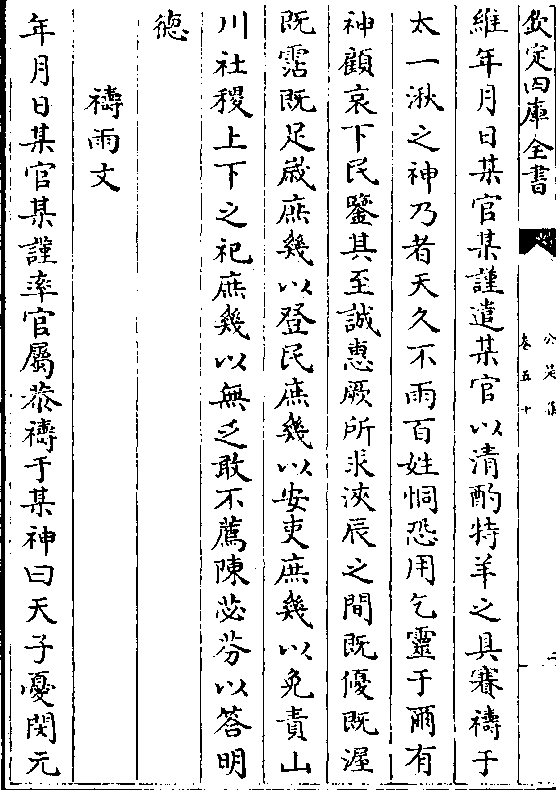 欽定四庫全書
公是集
卷五十
維年月日某官某謹遣某官以清酌特羊之具賽禱于
太一湫之神乃者天久不雨百姓恫恐用乞靈于爾有
神顧哀下民鑒其至誠惠厥所求浹辰之間既優既渥
既霑既足嵗庶幾以登民庶幾以安吏庶幾以免責山
川社稷上下之祀庶幾以無乏敢不薦陳苾芬以答明
徳
禱雨文
年月日某官某謹率官屬恭禱于某神曰天子憂閔元